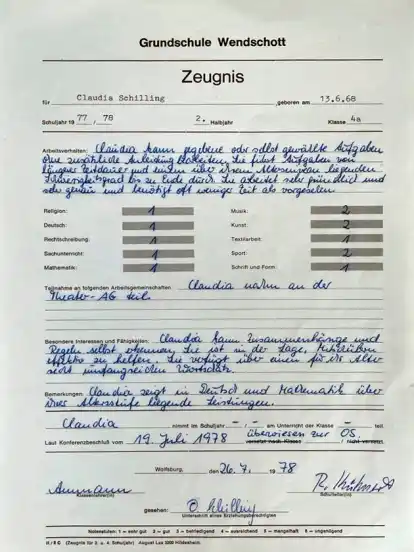 Grundschule Wendschott
Zeugnis
für Claudia Schilling geboren am 13.6.68
Schuljahr 19 77 / 78 2. Halbjahr Klasse 4a
Arbeitsverhalten: Claudia kann gegebene oder selbst gewählte Aufgaben
ohne zusätzliche Anleitung bearbeiten. Sie führt Aufgaben von
längerer Zeitdauer und einem über ihrem Altersniveau liegenden
Schwierigkeitsgrad bis zu Ende durch. Sie arbeitet sehr gründlich und
sehr genau und benötigt oft weniger Zeit als vorgesehen.
Religion: 1 Musik: 2
Deutsch: 1 Kunst: 2
Rechtschreibung: 1 Textilarbeit: 1
Sachunterricht: 1 Sport: 2
Mathematik: 1 Schrift und Form: 1
Teilnahme an folgenden Arbeitsgemeinschaften: Claudia nahm an der
Theater-AG teil.
Besondere Interessen und Fähigkeiten: Claudia kann Zusammenhänge und
Regeln selbst erkennen. Sie ist in der Lage, Mitschülern
zu helfen. Sie verfügt über einen für ihr Alter
sehr umfangreichen Wortschatz.
Bemerkungen: Claudia zeigt in Deutsch und Mathematik über
ihrer Altersstufe liegende Leistungen.
Claudia nimmt im Schuljahr – / – am Unterricht der Klasse – teil.
Laut Konferenzbeschluß vom 19. Juli 1978 überwiesen zur OS.
versetzt nach Klasse / nicht versetzt.
Wolfsburg, den 26. 7. 19 78
Klassenlehrer(in) Schulleiter(in)
gesehen: Schilling
Unterschrift eines Erziehungsberechtigten
Notenstufen: 1 = sehr gut 2 = gut 3 = befriedigend 4 = ausreichend 5 = mangelhaft 6 = ungenügend
(Zeugnis für 3. u. 4. Schuljahr) August Lax 3200 Hildesheim